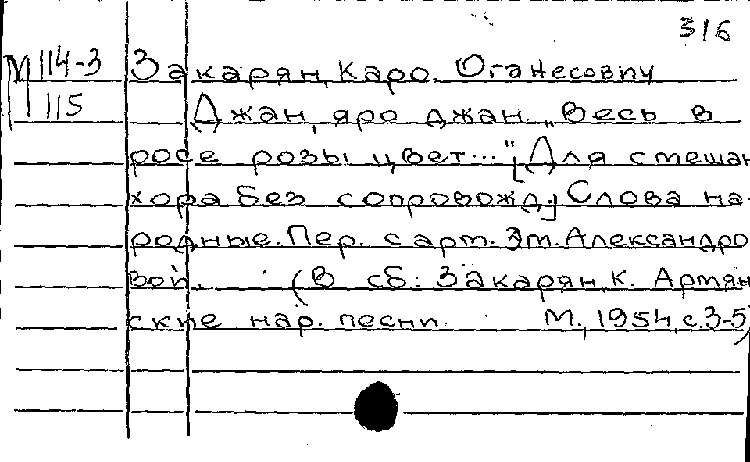 316
М 114-3 Закарян, Каро Оганесович
115 Джан, яро джан „Весь в
росе розы цвет..." [Для смешан.
хора без сопровожд.] Слова на-
родные. Пер. с арт. Эм. Александро-
вой. (В сб.: Закарян, К. Армян-
ские нар. песни. М., 1954, с. 3-5)